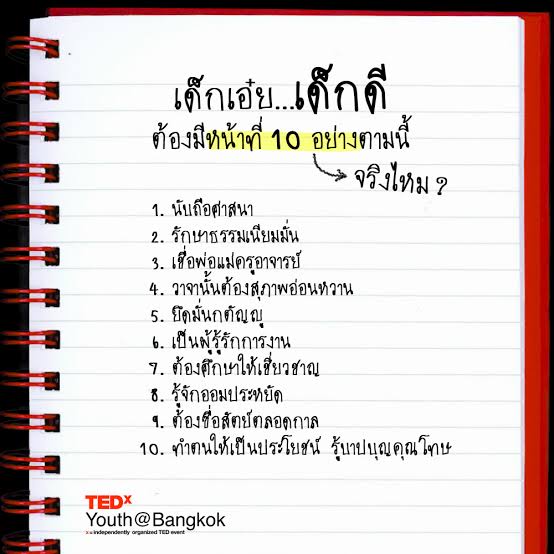 เด็กเอ๋ย...เด็กดี
ต้องมีหน้าที่ 10 อย่างตามนี้
จริงไหม ?
1. นับถือศาสนา
2. รักษาธรรมเนียมมั่น
3. เชื่อพ่อแม่ครูอาจารย์
4. วาจานั้นต้องสุภาพอ่อนหวาน
5. ยึดมั่นกตัญญู
6. เป็นผู้รู้รักการงาน
7. ต้องศึกษาให้เชี่ยวชาญ
8. รู้จักออมประหยัด
9. ต้องซื่อสัตย์ตลอดกาล
10. ทำตนให้เป็นประโยชน์ รู้บาปบุญคุณโทษ
TEDx
Youth@Bangkok
x = independently organized TED event